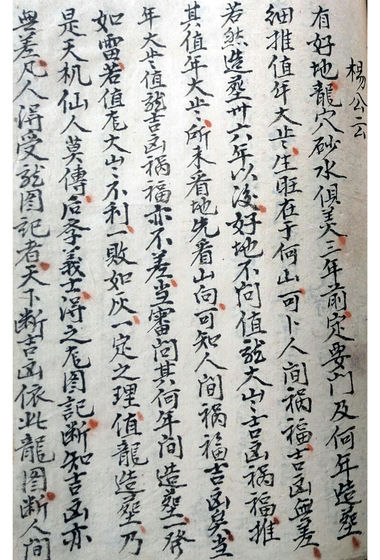 楊公云
有好地龍穴砂水俱美三年前定要門及何年造塟
細推值年大𫝀生旺在于何山可卜人間禍福吉凶無差
若然造塟卅六年以後好地不问值龍大山吉凶祸福推
其值年大𫝀所未看地先看山向可知人间祸福吉凶矣当
年大𫝀值龍吉凶祸福亦不差当審问其何年间造塟一發
如雷若值尨大山不利一敗如灰一定之理值龍造塟乃
是天机仙人莫傳后李義士淂之尨图記断知吉凶亦
無差凡人淂受龍图記者天下断吉凶依此龍图断人间